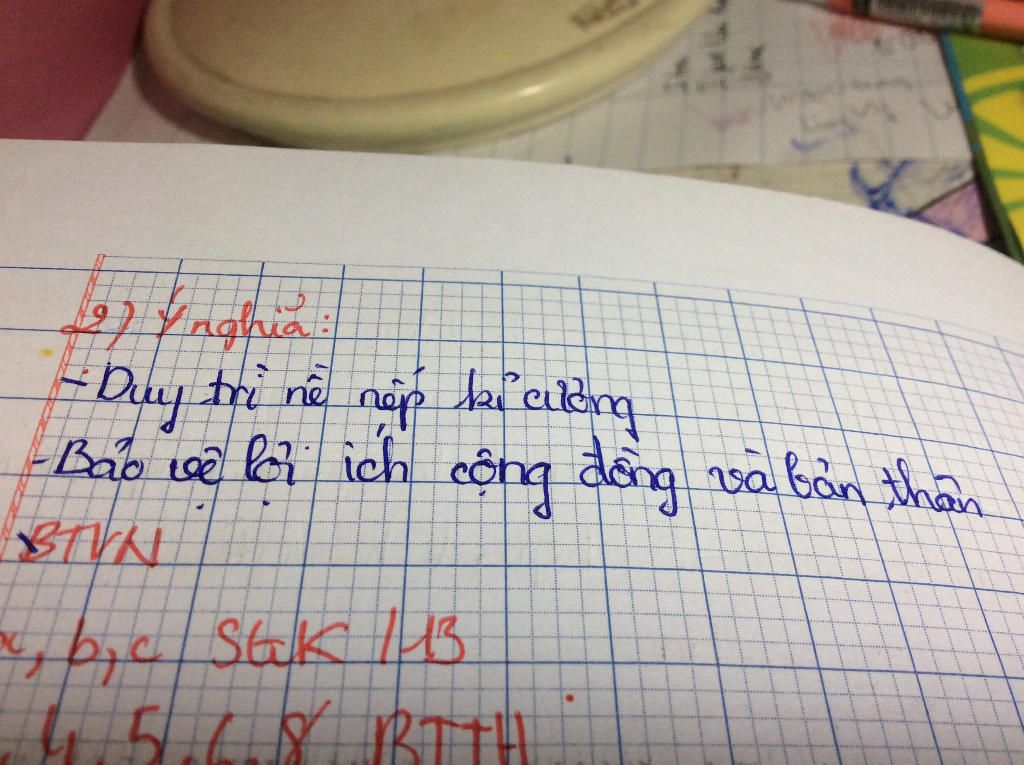 2) Ý nghĩa:
- Duy trì nề nếp kỉ cương
- Bảo vệ lợi ích cộng đồng và bản thân
BTVN
a, b, c SGK / 13
4, 5, 6, 8 BTTH